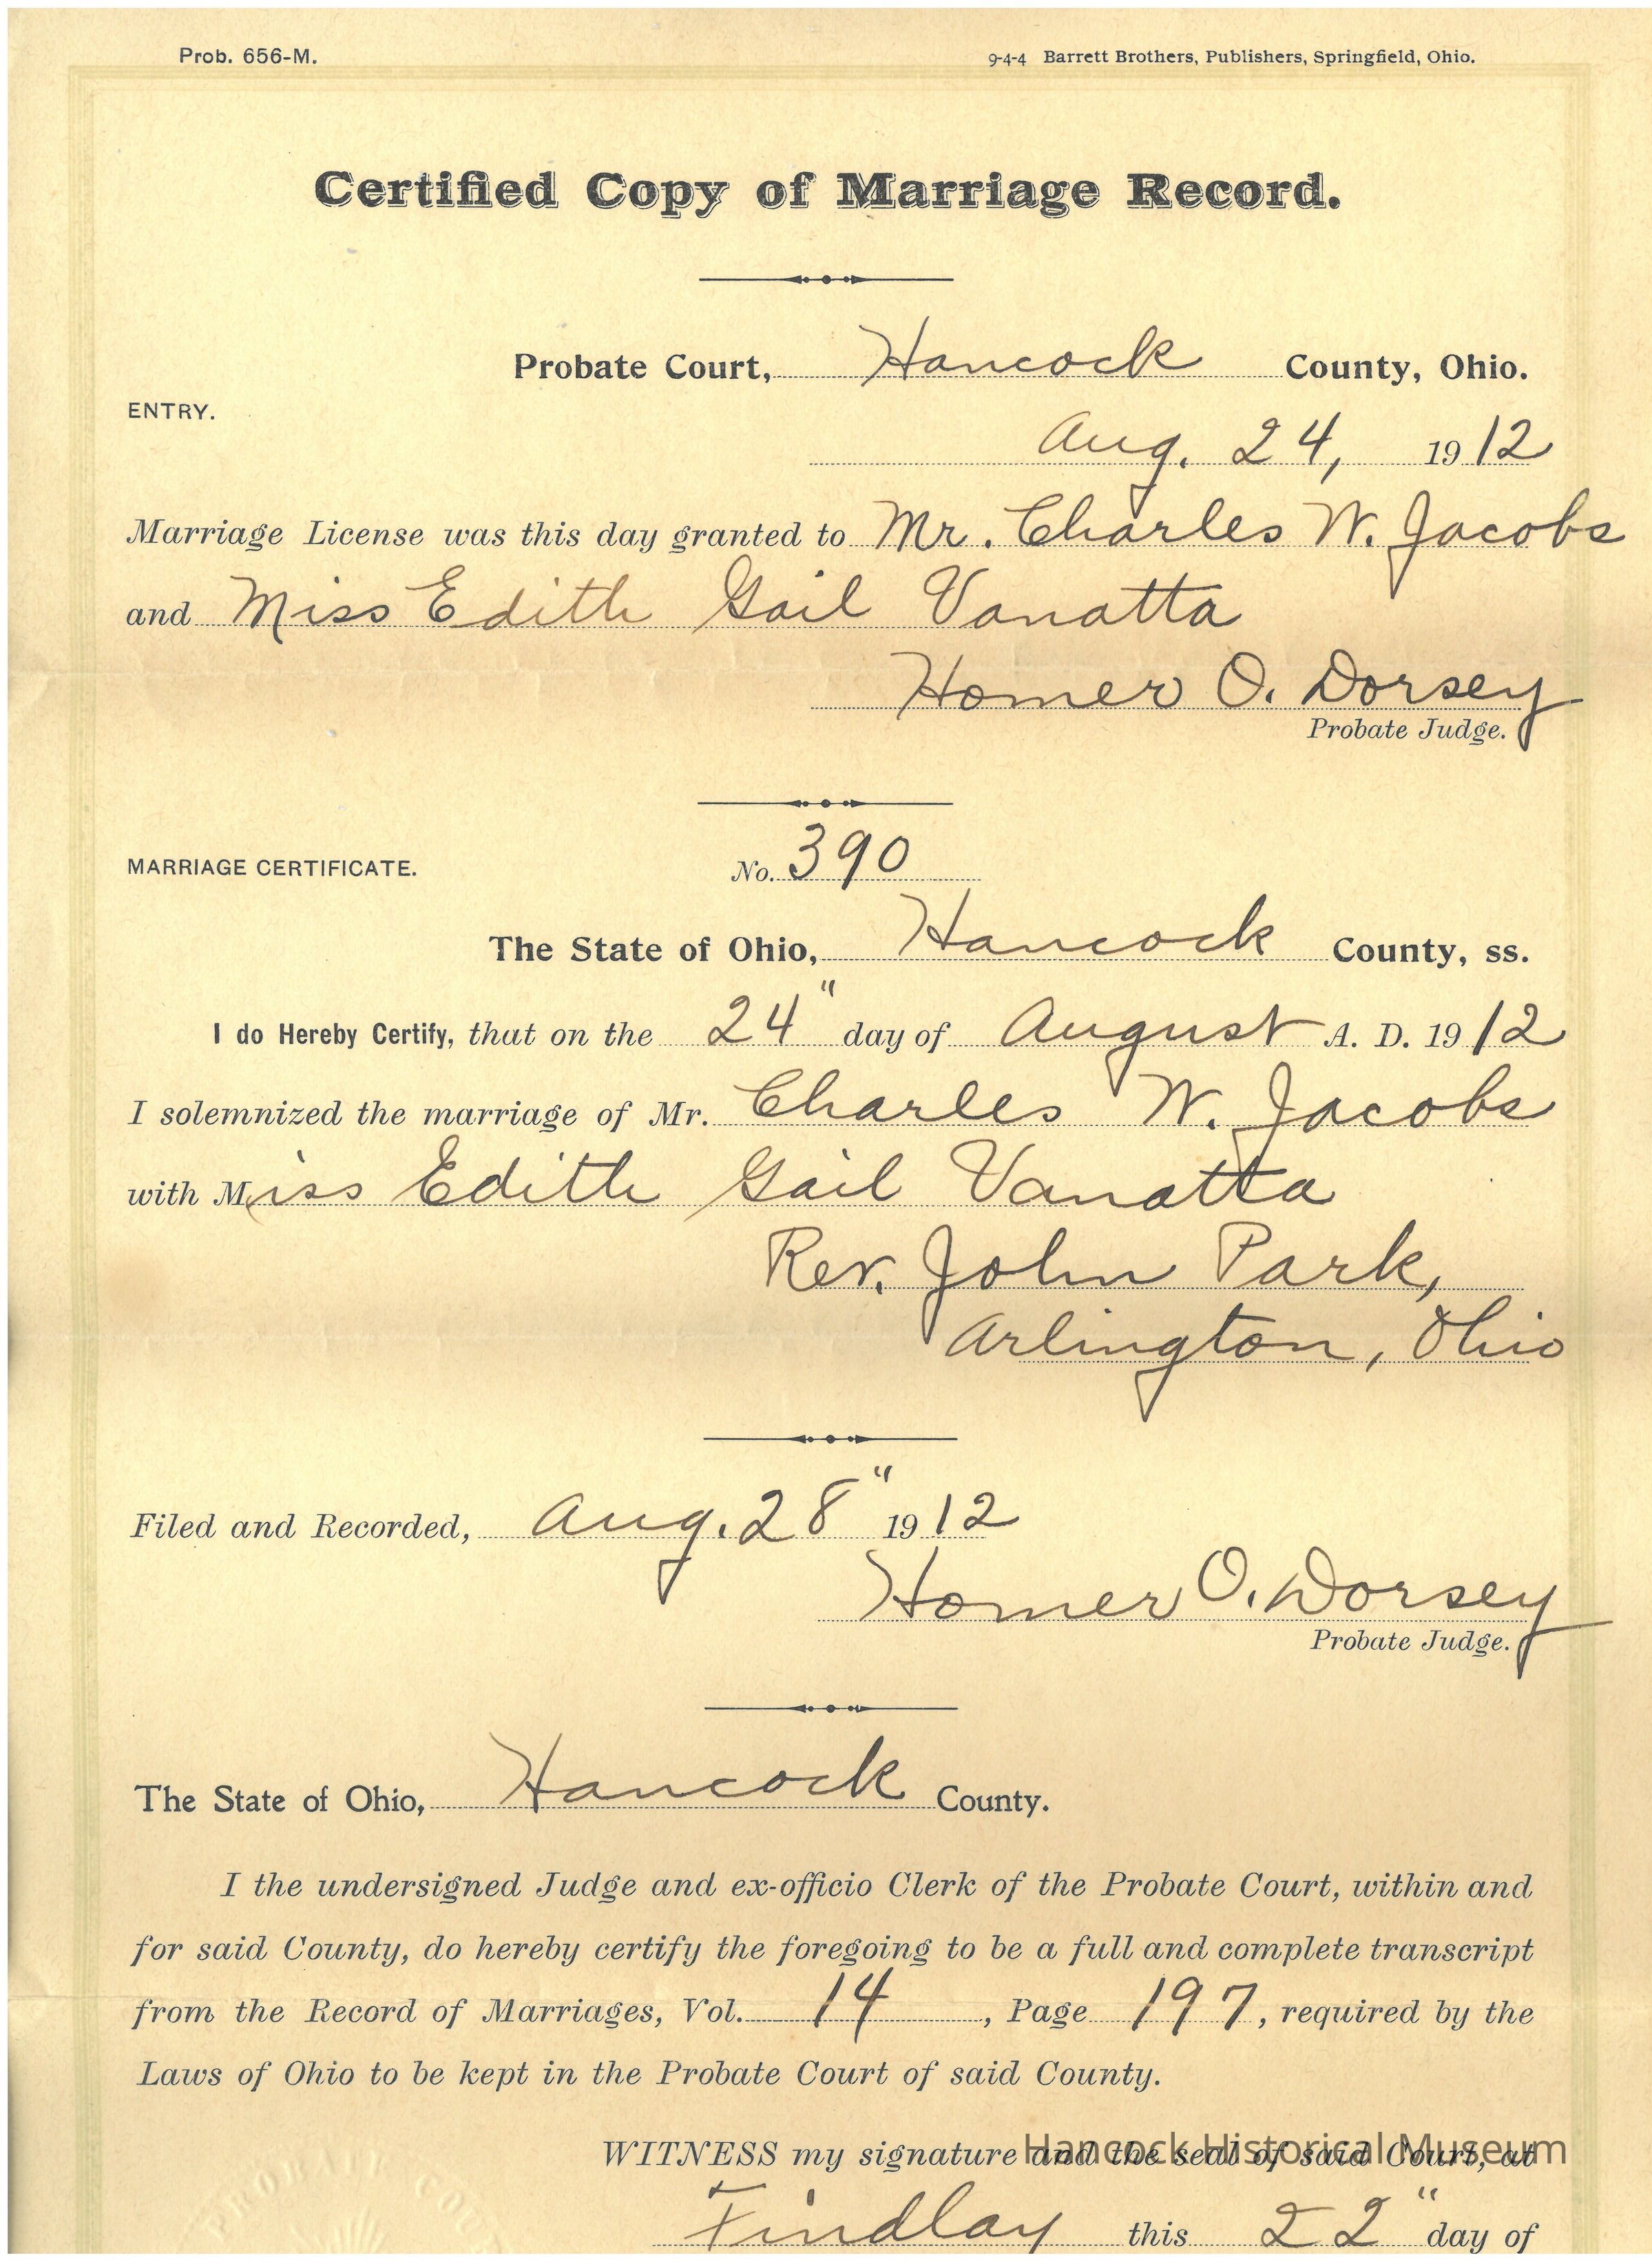 Prob. 656-M. 9-4-4 Barrett Brothers, Publishers, Springfield, Ohio.
Certified Copy of Marriage Record.
Probate Court, Hancock County, Ohio.
ENTRY.
Aug. 24, 1912
Marriage License was this day granted to Mr. Charles W. Jacobs
and Miss Edith Gail Vanatta
Homer O. Dorsey
Probate Judge.
MARRIAGE CERTIFICATE. No. 390
The State of Ohio, Hancock County, ss.
I do Hereby Certify, that on the 24" day of August A. D. 1912
I solemnized the marriage of Mr. Charles W. Jacobs
with Miss Edith Gail Vanatta
Rev. John Park,
Arlington, Ohio
Filed and Recorded, Aug. 28" 1912
Homer O. Dorsey
Probate Judge.
The State of Ohio, Hancock County.
I the undersigned Judge and ex-officio Clerk of the Probate Court, within and
for said County, do hereby certify the foregoing to be a full and complete transcript
from the Record of Marriages, Vol. 14, Page 197, required by the
Laws of Ohio to be kept in the Probate Court of said County.
WITNESS my signature and the seal of said Court, at
Hancock Historical Museum
Findlay this 22" day of
PROBATE COU